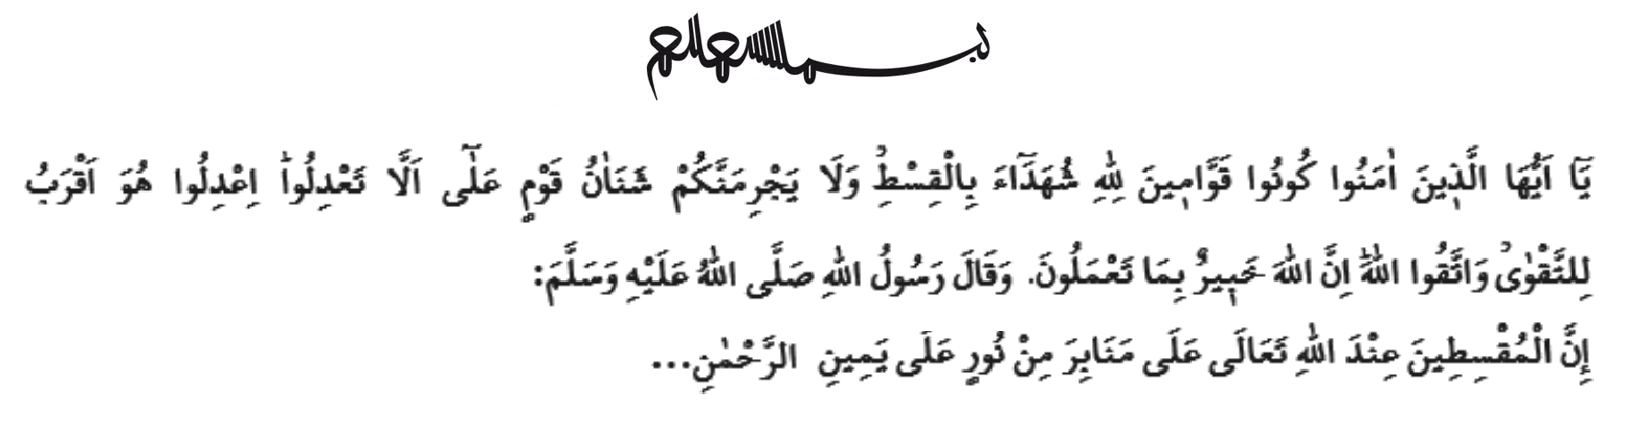 بسم الله الرحمن الرحيم
يَٓا اَيُّهَا الَّذ۪ينَ اٰمَنُوا كُونُوا قَوَّام۪ينَ لِلّٰهِ شُهَدَٓاءَ بِالْقِسْطِۘ وَلَا يَجْرِمَنَّكُمْ شَنَاٰنُ قَوْمٍ عَلٰٓى اَلَّا تَعْدِلُواۜ اِعْدِلُوا هُوَ اَقْرَبُ
لِلتَّقْوٰىۘ وَاتَّقُوا اللّٰهَۜ اِنَّ اللّٰهَ خَب۪يرٌ بِمَا تَعْمَلُونَ. وَقَالَ رَسُولُ اللّٰهِ صَلَّى اللّٰهُ عَلَيْهِ وَسَلَّمَ:
إِنَّ الْمُقْسِطِينَ عِنْدَ اللّٰهِ تَعَالَى عَلَى مَنَابِرَ مِنْ نُورٍ عَلَى يَمِينِ الرَّحْمٰنِ...